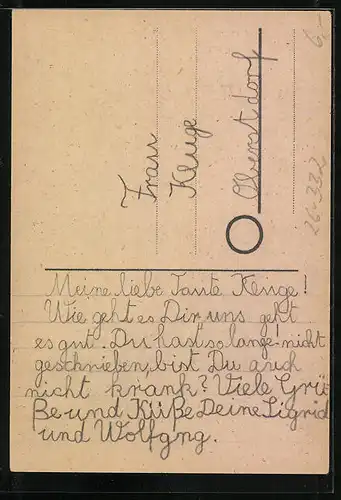 Frau
Kluge
Oberstdorf
6,-
26-332
Meine liebe Tante Kluge!
Wie geht es Dir, uns geht
es gut. Du hast so lange nicht
geschrieben, bist Du auch
nicht krank? Viele Grü-
ße und Küße Deine Sigrid
und Wolfgng.